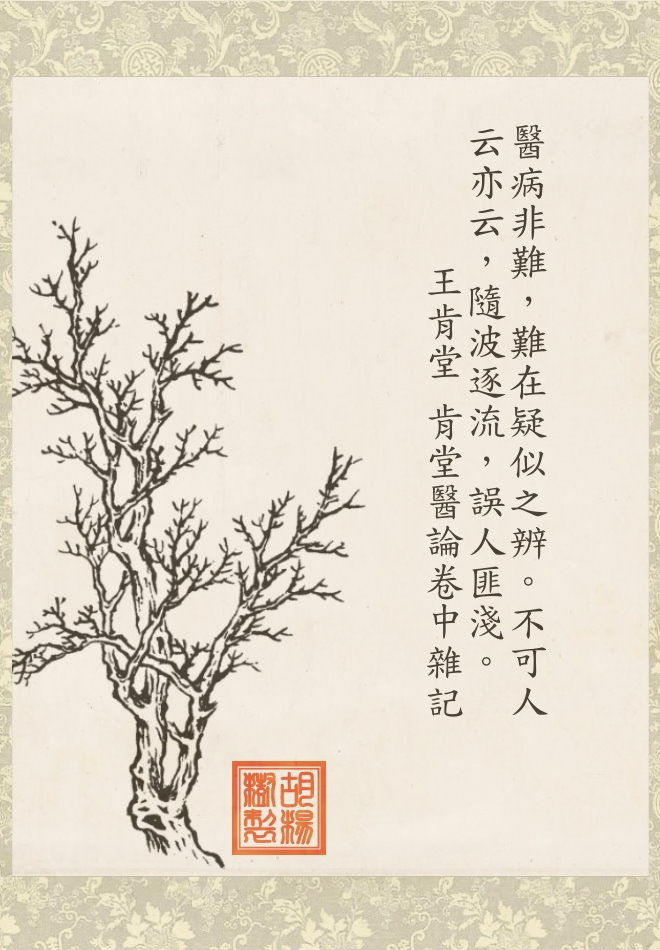 醫病非難，難在疑似之辨。不可人
云亦云，隨波逐流，誤人匪淺。
王肯堂 肯堂醫論卷中雜記
胡楊
樹製